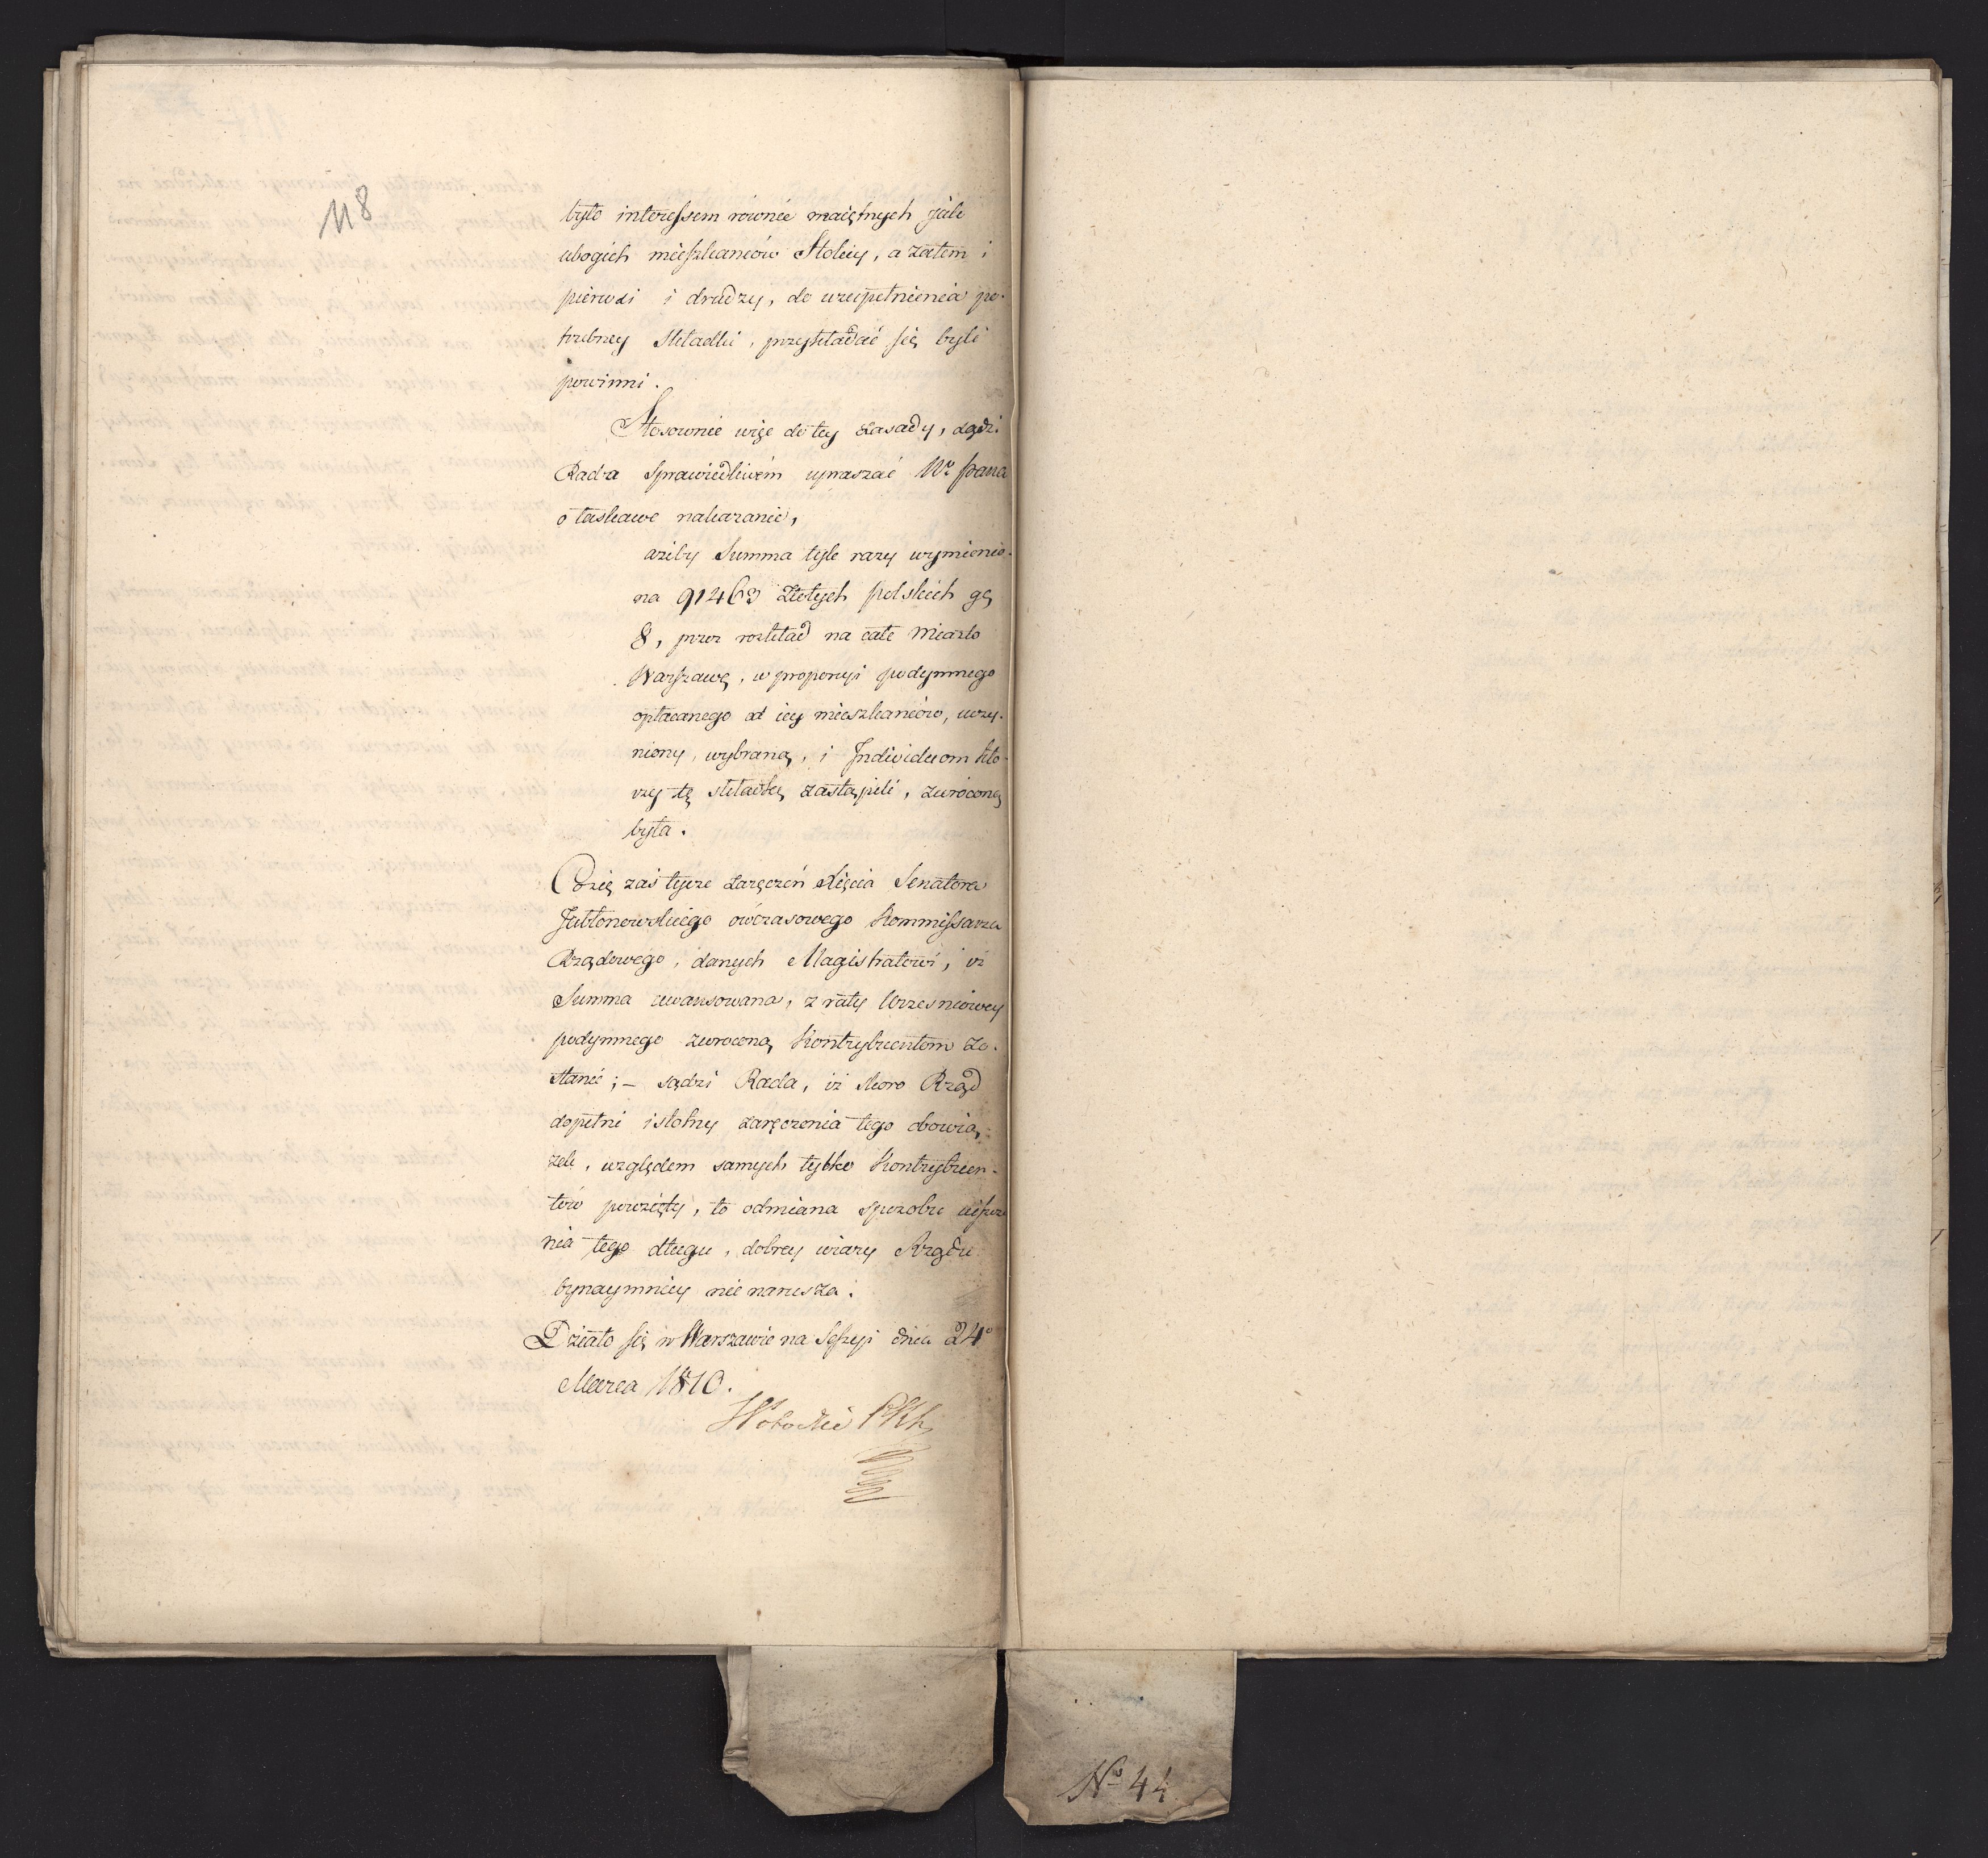 118
było interessem równie maiętnych jak
ubogich mieszkańców Stolicy, a zatem i
pierwsi i drudzy, do uzupełnienia po-
trzebney składki, przykładać się byli
powinni.
Stosownie więc do tey zasady, sądzi
Rada sprawiedliwem upraszać Wº Pana
o łaskawe nakazanie,
ażeby Summa tyle razy wymienio-
na 91463 złotych polskich gę
8, przez rozkład na całe Miasto
Warszawę, w proporcyi podymnego
opłacanego od iey mieszkańców, uczy-
niony, wybraną, i Individuom któ-
rzy tę składkę zastąpili, zwróconą
była.
Co się zaś tycze zaręczeń Xięcia Senatora
Jabłonowskiego ówczasowego Kommissarza
Rządowego, danych Magistratowi, iż
Summa awansowana, z raty Wrzesniowey
podymnego zwroconą Kontrybuentom zo-
stanie; – sądzi Rada, iż skoro Rząd
dopełni istotny zaręczenia tego obowią-
zek, względem samych tylko Kontrybuen-
tów powzięty, to odmiana sposobu uiszcze
nia tego długu, dobrey wiary Rządu
bynaymniey nie narusza.
Działo się w Warszawie na Sessyi dnia 24º
Marca 1810.
Nº 44